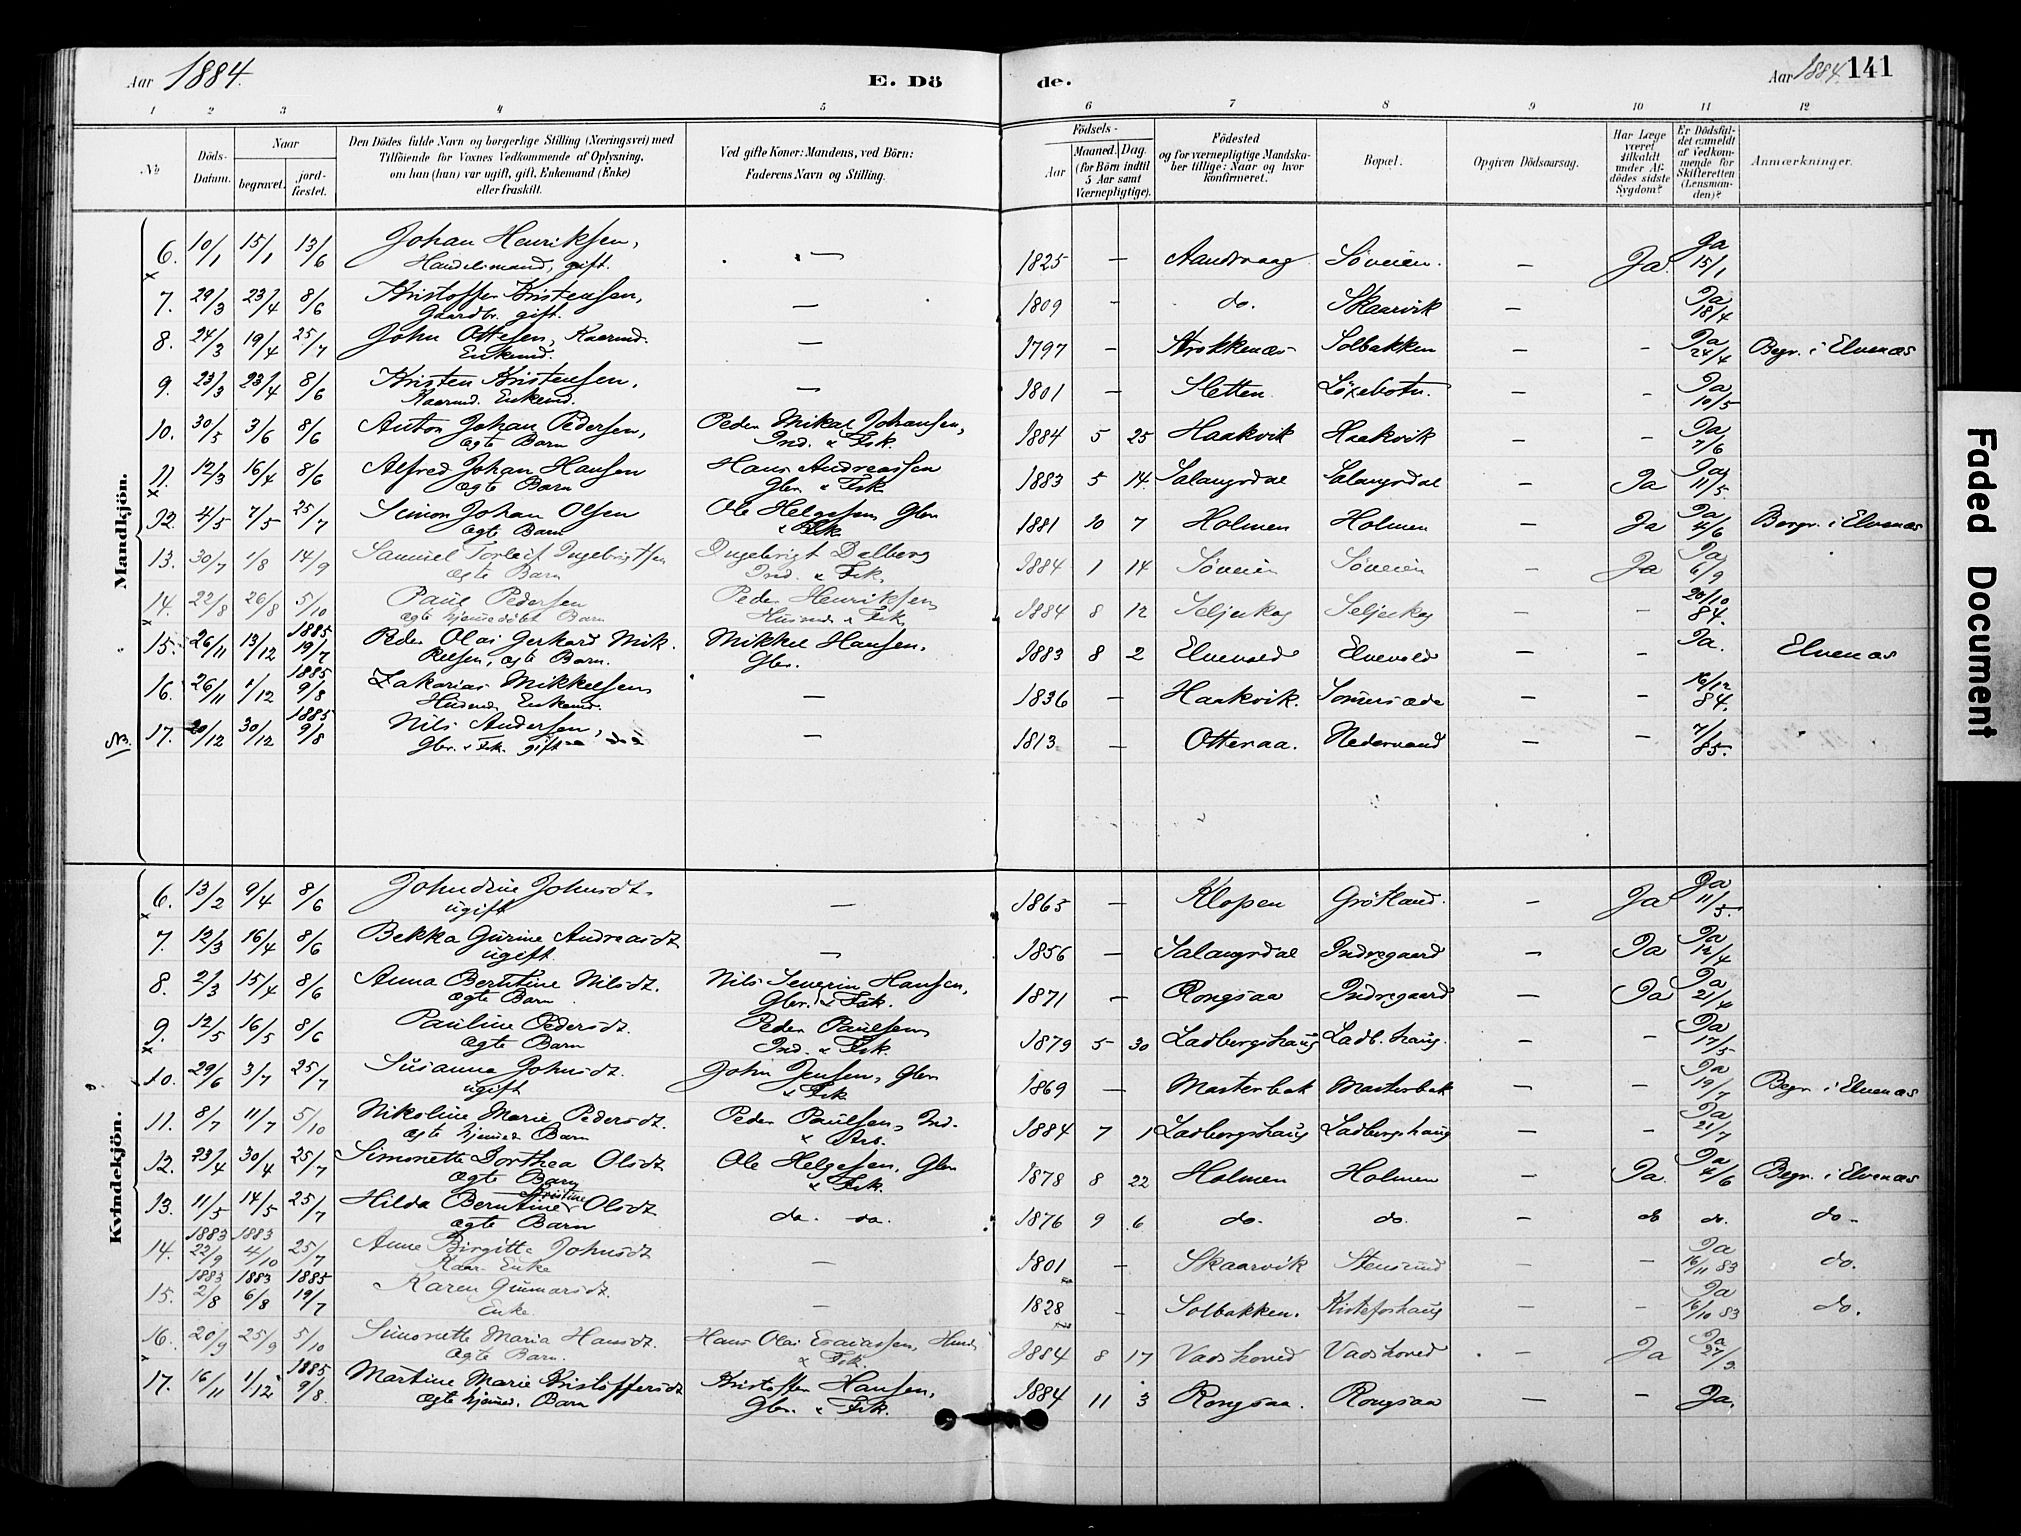 Aar 1884. E. Dö de. Aar 1884. 141
1 2 3 4 5 6 7 8 9 10 11 12
No Döds-Datum. Naar begravet. jordfæstet. Den Dödes fulde Navn og borgerlige Stilling (Næringsvei) med Tilföiende for Voxnes Vedkommende af Oplysning, om han (hun) var ugift, gift, Enkemand (Enke) eller fraskilt. Ved gifte Koner: Mandens, ved Börn: Faderens Navn og Stilling. Födsels- Aar Maaned. Dag. (for Börn indtil 5 Aar samt Værnepligtige). Födested og for værnepligtige Mandskaber tillige: Naar og hvor konfirmeret. Bopæl. Opgiven Dödsaarsag. Har Læge været tilkaldt under Afdödes sidste Sygdom? Er Dödsfaldet anmeldt af Vedkommende for Skifteretten (Lensmanden)? Anmærkninger.
Mandkjön.
6. 10/1 15/1 13/6 Johan Henriksen, — 1825 — Aandvaag Söveien. — Ja. Ja 15/1
Handelsmand, gift.
7. 29/3 23/4 8/6 Kristoffer Kristensen, — 1809 — do. Skaarvik — Ja 18/4
Gaardbr. gift.
8. 24/3 19/4 25/7 John Ottesen, Kaarmd. — 1797 — Strokkenæs Solbakken — — Ja 24/4 Begr. i Elvenæs
Enkemd.
9. 23/3 23/4 8/6 Kristen Kristensen, — 1801 — Sletten Löxebotn. — — Ja 10/5
Kaarmd. Enkemd.
10. 30/5 3/6 8/6 Anton Johan Pedersen, Peder Mikal Johansen, 1884 5 25 Haakvik Haakvik — — Ja 7/6
ægte Barn Ind. & Fsk.
11. 12/3 16/4 8/6 Alfred Johan Hansen Hans Andreassen 1883 5 14. Salangsdal Salangsdal — Ja Ja 11/5
ægte Barn Gbr. & Fsk
12. 4/5 7/5 25/7 Simon Johan Olsen Ole Helgesen Gbr 1881 10 7 Holmen Holmen — Ja Ja 4/6 Begr. i Elvenæs
ægte Barn & Fsk.
13. 30/7 1/8 14/9 Samuel Torleif Ingebrigtsen Ingebrigt Dalberg 1884 1 14 Söveien Söveien — Ja Ja 6/9
ægte Barn Ind. & Fsk.
14. 22/8 26/8 5/10 Paul Pedersen Peder Henriksen 1884 8 12 Seljeskog Seljeskog — — 20/10 84.
ægte hjemmedöbt Barn Husmd & Fsk.
15. 26/11 13/12 1885 19/7 Peder Olai Gerhard Mik- Mikkel Hansen, 1883 8 2 Elvevold Elvevold — — Ja. Elvenæs
kelsen, ægte Barn. Gbr.
16. 26/11 1/12 1885 9/8 Zakarias Mikkelsen — 1836 — Haakvik. — — 16/12 84.
Enkemd.
17. 20/12 30/12 1885 9/8 Nils Andersen, — 1813 — Otteraa. Nedervand — — 7/1 85.
Gbr. & Fsk. gift
Kvindekjön.
6. 13/2 9/4 8/6 Johndine Johnsdt. — 1865 — Klopen Grötland. — Ja Ja 11/5.
ugift
7. 12/3 16/4 8/6 Bekka Gurine Andreasdt — 1856 — Salangsdal Indregaard — Ja Ja 12/4
ugift
8. 2/3 15/4 8/6 Anna Berntine Nilsdt. Nils Severin Hansen, 1871 — Rongsaa Indregaard — Ja Ja 21/4
ægte Barn Gbr. & Fsk.
9. 12/5 16/5 8/6 Pauline Pedersdt. Peder Paulsen 1879 5 30 Ladbergshaug Ladb. haug. — — Ja 17/5
ægte Barn Ind. & Fsk.
10. 29/6 3/7 25/7 Susanna Johnsdt. John Jensen, Gbr 1869 — Masterbak Masterbak — — Ja 19/7 Begr. i Elvenæs
ugift & Fsk
11. 8/7 11/7 5/10 Nikoline Marie Pedersdt. Peder Paulsen, Ind. 1884 7 1 Ladbergshaug Ladbergshaug — — Ja 21/7
ægte hjemmed Barn & Arb.
12. 23/4 30/4 25/7 Simonette Dorthea Olsdt Ole Helgesen, Gbr 1878 8 22 Holmen Holmen — Ja. Ja 4/6 Begr. i Elvenæs
ægte Barn & Fsk.
13. 11/5 14/5 25/7 Hilda Berntine Kristine Olsdt do. do. 1876 9 6 do. do. — do do. do.
ægte Barn
14. 1883 22/9 1883 4/10 25/7 Anne Birgitte Johnsdt — 1801 — Skaarvik Stensund — — Ja 16/11 83 do.
Kaar Enke
15. 1883 2/8 1883 6/8 1885 19/7 Karen Gunnarsdt. — 1828 — Solbakken. Kistefoshaug — — Ja 16/10 83 do.
Enke.
16. 20/9 25/9 5/10 Simonette Maria Hansdt. Hans Olai Esaiassen, Husm. 1884 8 17 Vadshoved Vadshoved — Ja Ja 27/9
ægte Barn. & Fsk.
17. 16/11 1/12 1885 9/8. Martine Marie Kristoffersdt Kristoffer Hansen, 1884 11 3 Rongsaa. Rongsaa — — Ja.
ægte hjemmed. Barn Gbr. & Fsk.
Faded Document